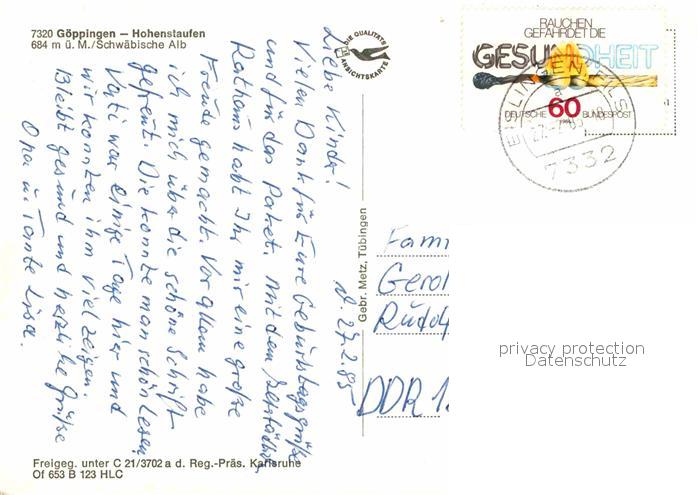 7320 Göppingen — Hohenstaufen
684 m ü. M./Schwäbische Alb
DIE QUALITÄTS
ANSICHTSKARTE
RAUCHEN
GEFÄHRDET DIE
GESUNDHEIT
DEUTSCHE 60 BUNDESPOST
EISLINGEN, FILS
7332
d. 27.2.85
Liebe Kinder!
Vielen Dank für Eure Geburtstagsgrüße
und für das Paket. Mit dem
Rathaus habt Ihr mir eine große
Freude gemacht. Vor allem habe
ich mich über die schöne Schrift
gefreut. Die konnte man schön lesen.
Vati war einige Tage hier und
wir konnten ihm viel zeigen.
Bleibt gesund und herzliche Grüße
Opa u. Tante Lisa.
Gebr. Metz, Tübingen
Fami
Gerol
Rudol
DDR 1
privacy protection
Datenschutz
Freigeg. unter C 21/3702 a d. Reg.-Präs. Karlsruhe
Of 653 B 123 HLC